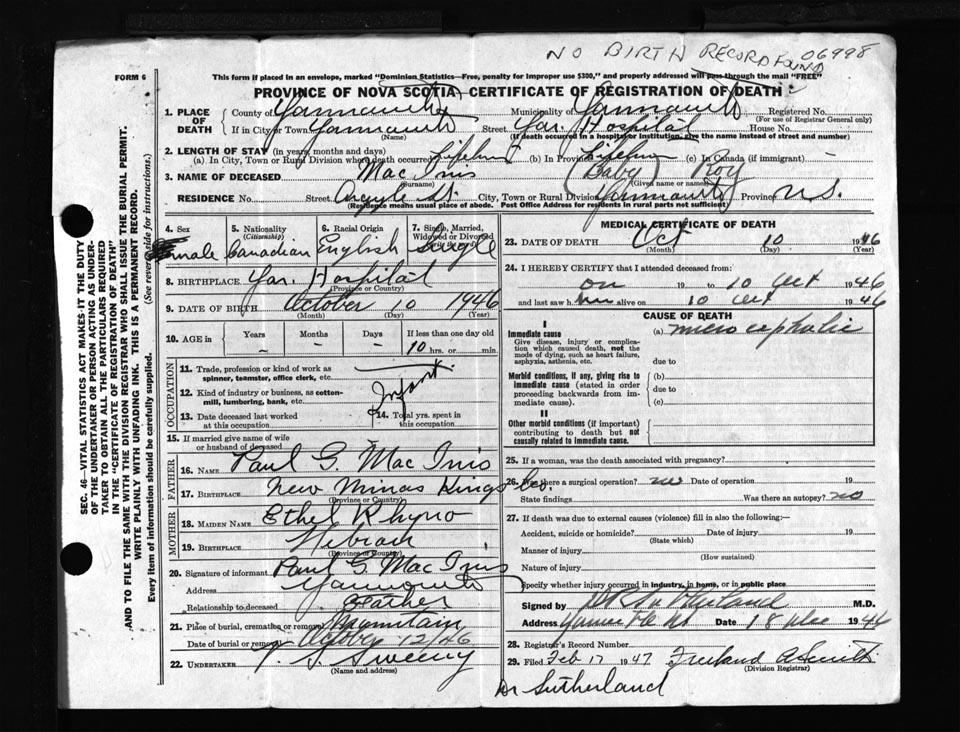 NO BIRTH RECORD FOUND 06998
FORM 6
This form if placed in an envelope, marked "Dominion Statistics—Free, penalty for improper use $300," and properly addressed will pass through the mail "FREE"
PROVINCE OF NOVA SCOTIA, CERTIFICATE OF REGISTRATION OF DEATH
1. PLACE OF DEATH
County of Yarmouth Municipality of Yarmouth Registered No.
(For use of Registrar General only)
If in City or Town Yarmouth Street Yar. Hospital House No.
(Name) (If death occurred in a hospital or institution, give the name instead of street and number)
2. LENGTH OF STAY (in years, months and days)
(a) In City, Town or Rural Division where death occurred Lifetime (b) In Province Lifetime (c) In Canada (if immigrant) -
3. NAME OF DECEASED Mac Inis (Baby) Roy
(Surname) (Given name or names)
RESIDENCE No. Street Argyle St City, Town or Rural Division Yarmouth Province N.S.
(Residence means usual place of abode. Post Office Address for residents in rural parts not sufficient)
4. Sex
male
5. Nationality (Citizenship)
Canadian
6. Racial Origin
English
7. Single, Married, Widowed or Divorced
Single
8. BIRTHPLACE Yar. Hospital
(Province or Country)
9. DATE OF BIRTH October 10 1946
(Month) (Day) (Year)
10. AGE in Years Months Days If less than one day old
– – – 10 hrs. or min.
OCCUPATION
11. Trade, profession or kind of work as spinner, teamster, office clerk, etc.
12. Kind of industry or business, as cotton-mill, lumbering, bank, etc.
Infant
13. Date deceased last worked at this occupation
14. Total yrs. spent in this occupation
15. If married give name of wife or husband of deceased
FATHER
16. NAME Paul G. Mac Inis
17. BIRTHPLACE New Minas Kings Co.
(Province or Country)
MOTHER
18. MAIDEN NAME Ethel Rhyno
19. BIRTHPLACE
(Province or Country)
20. Signature of informant Paul G. Mac Inis
Address Yarmouth
Relationship to deceased Father
21. Place of burial, cremation or removal Mountain
Date of burial or removal October 12/46
22. UNDERTAKER Sweeny
(Name and address)
MEDICAL CERTIFICATE OF DEATH
23. DATE OF DEATH Oct 10 1946
(Month) (Day) (Year)
24. I HEREBY CERTIFY that I attended deceased from:
on 19 to 10 Oct 1946
and last saw him alive on 10 Oct 1946
CAUSE OF DEATH
I
Immediate cause
Give disease, injury or complication which caused death, not the mode of dying, such as heart failure, asphyxia, asthenia, etc.
(a) microcephalic
due to
Morbid conditions, if any, giving rise to immediate cause (stated in order proceeding backwards from immediate cause).
(b)
due to
(c)
II
Other morbid conditions (if important) contributing to death but not causally related to immediate cause.
25. If a woman, was the death associated with pregnancy?
26. Was there a surgical operation? no Date of operation 19
State findings Was there an autopsy? no
27. If death was due to external causes (violence) fill in also the following:—
Accident, suicide or homicide? Date of injury 19
(State which)
Manner of injury
(How sustained)
Nature of injury
Specify whether injury occurred in industry, in home, or in public place
Signed by Sutherland M.D.
Address Yarmouth NS Date 18 Dec 1946
28. Registrar's Record Number
29. Filed Feb 17 1947 Freeland A Smith
(Division Registrar)
Dr Sutherland
SEC. 46—VITAL STATISTICS ACT MAKES IT THE DUTY
OF THE UNDERTAKER OR PERSON ACTING AS UNDER-
TAKER TO OBTAIN ALL THE PARTICULARS REQUIRED
IN THE "CERTIFICATE OF REGISTRATION OF DEATH"
AND TO FILE THE SAME WITH THE DIVISION REGISTRAR WHO SHALL ISSUE THE BURIAL PERMIT.
WRITE PLAINLY WITH UNFADING INK. THIS IS A PERMANENT RECORD.
Every item of information should be carefully supplied. (See reverse side for instructions.)